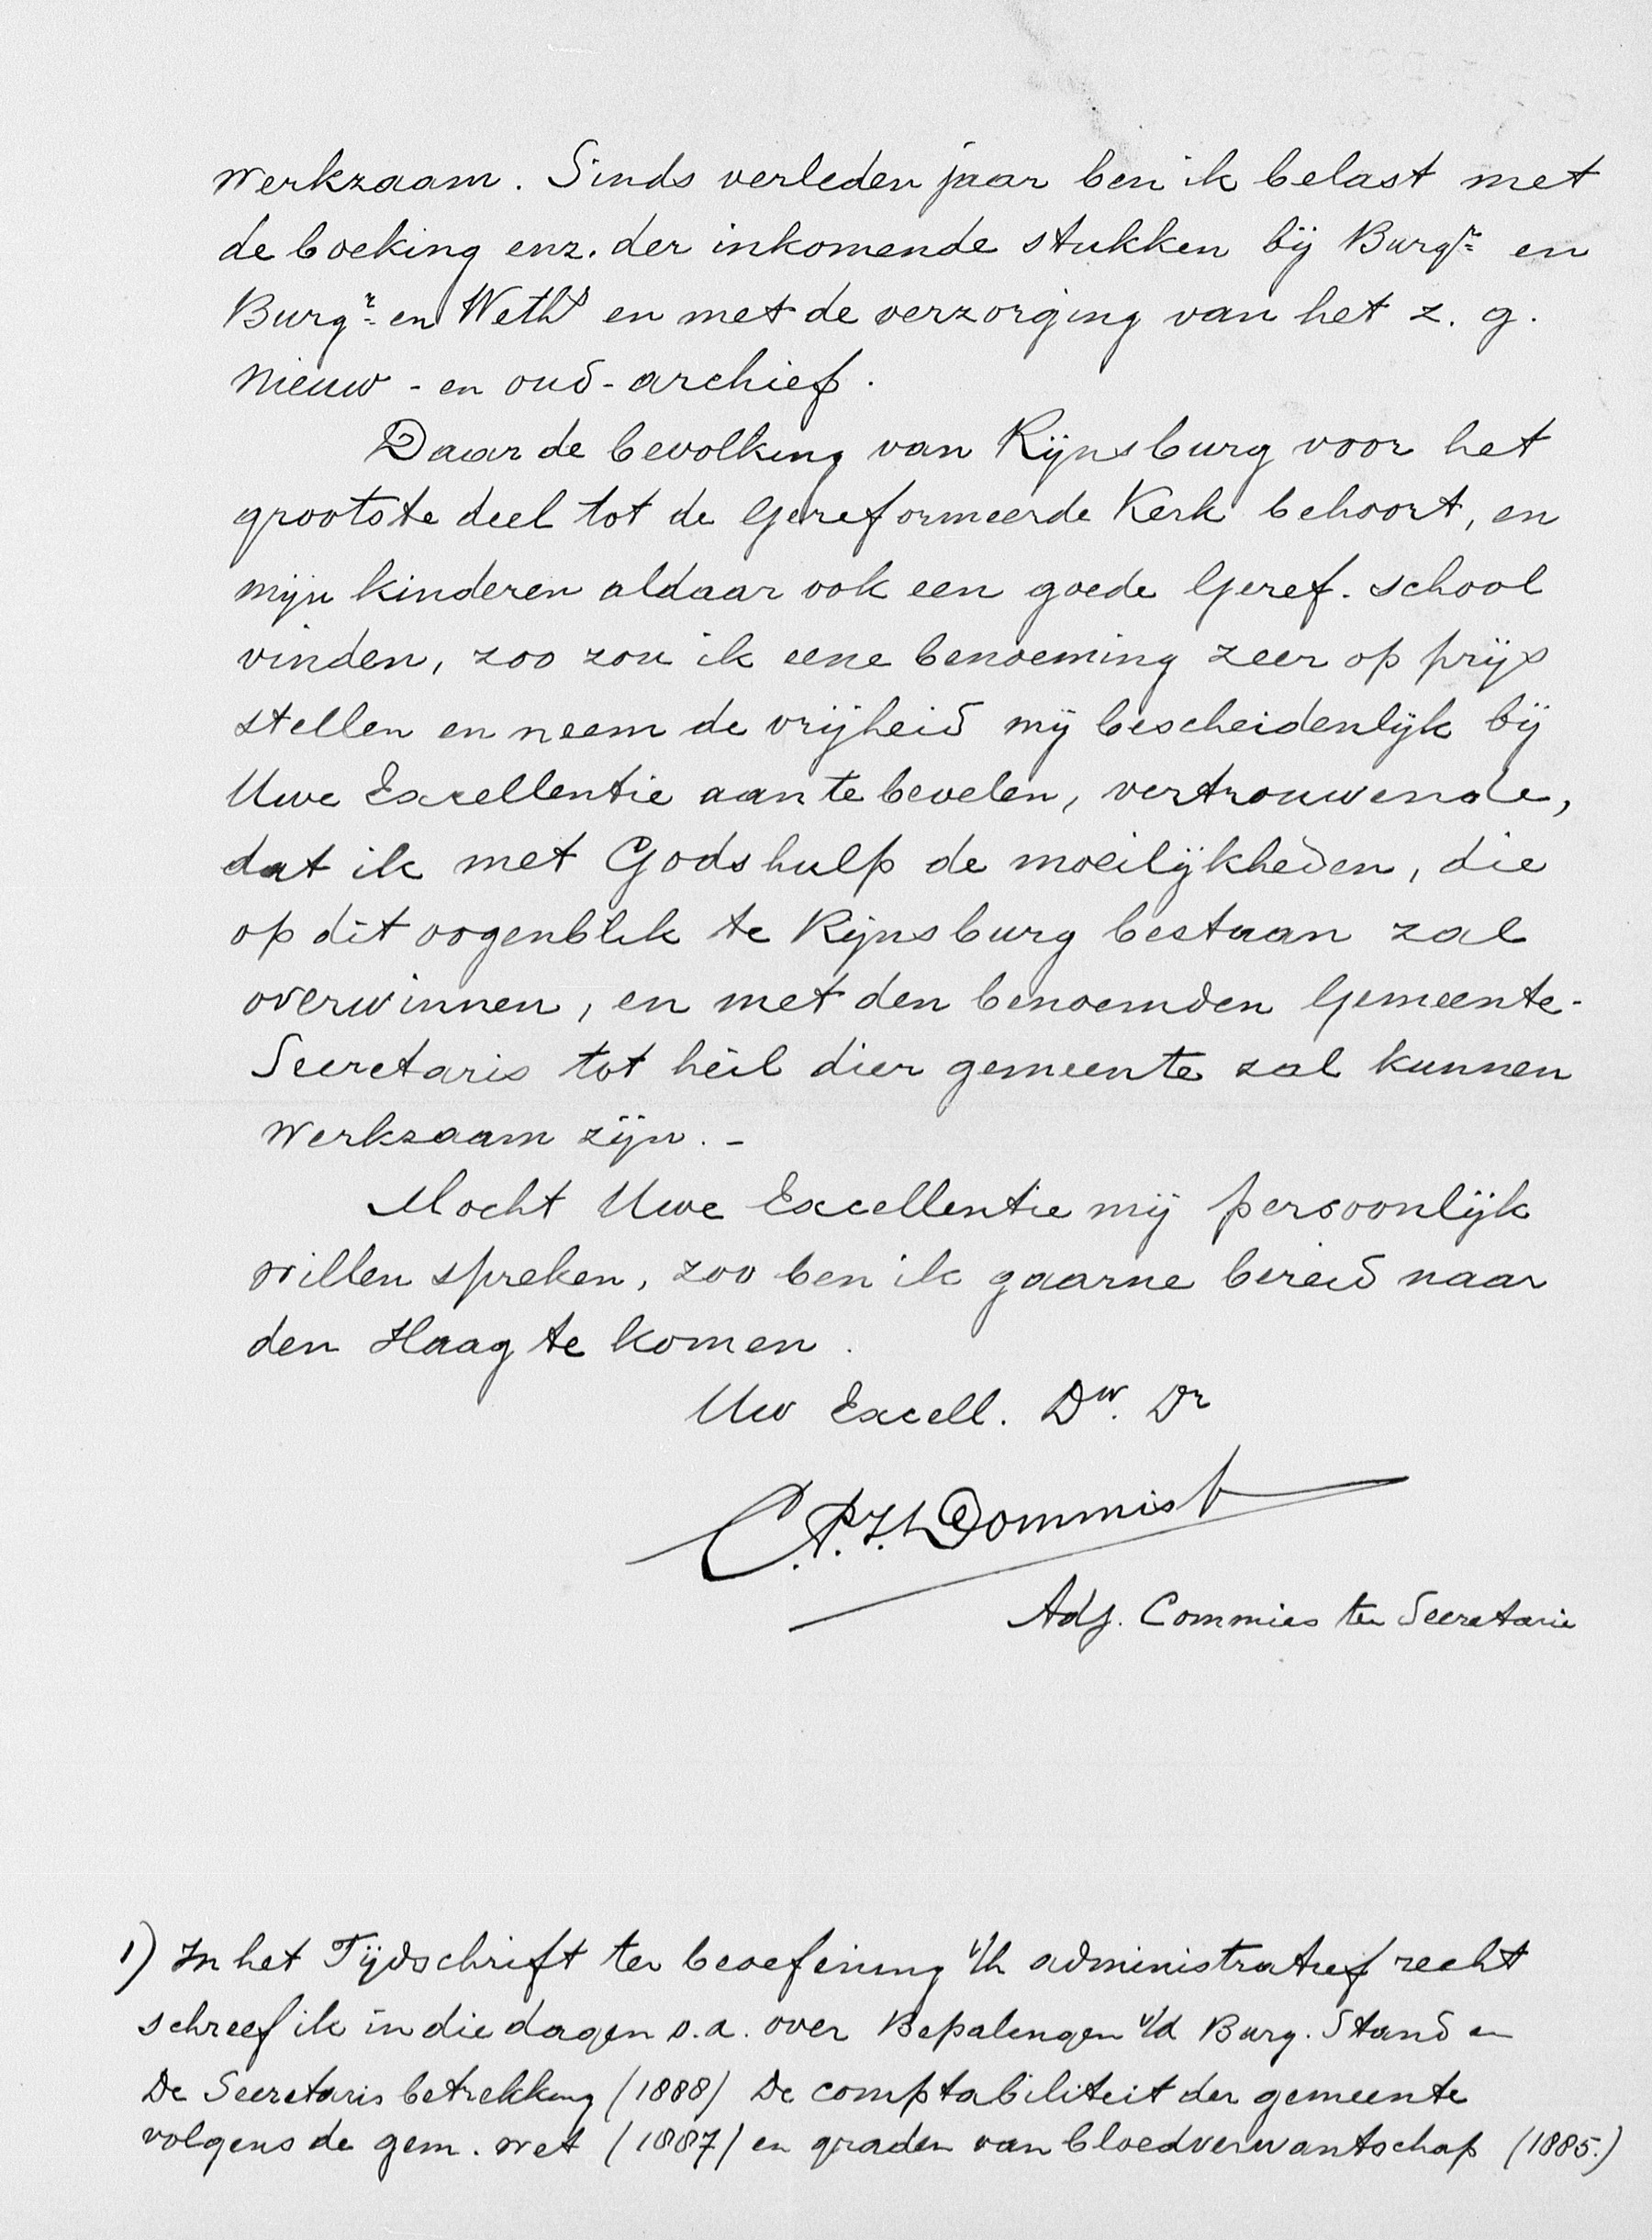 werkzaam. Sinds verleden jaar ben ik belast met
de boeking enz. der inkomende stukken bij Burgr en
Burgr en Weths en met de verzorging van het z. g.
nieuw - en oud - archief.
Daar de bevolking van Rijnsburg voor het
grootste deel tot de Gereformeerde Kerk behoort, en
mijn kinderen aldaar ook een goede Geref. school
vinden, zoo zou ik eene benoeming zeer op prijs
stellen en neem de vrijheid mij bescheidenlijk bij
Uwe Excellentie aan te bevelen, vertrouwende,
dat ik met Gods hulp de moeilijkheden, die
op dit oogenblik te Rijnsburg bestaan zal
overwinnen, en met den benoemden Gemeente-
Secretaris tot heil dier gemeente zal kunnen
werkzaam zijn. -
Mocht Uwe Excellentie mij persoonlijk
willen spreken, zoo ben ik gaarne bereid naar
den Haag te komen.
Uw Excell. Dw. Dr
Dommist
Adj. Commies ter Secretarie
1) In het Tijdschrift ter beoefening v/h administratief recht
schreef ik in die dagen o.a. over Bepalingen v/d Burg. Stand en
De Secretaris betrekking (1888) De comptabiliteit der gemeente
volgens de gem. wet (1887) en graden van bloedverwantschap (1885.)